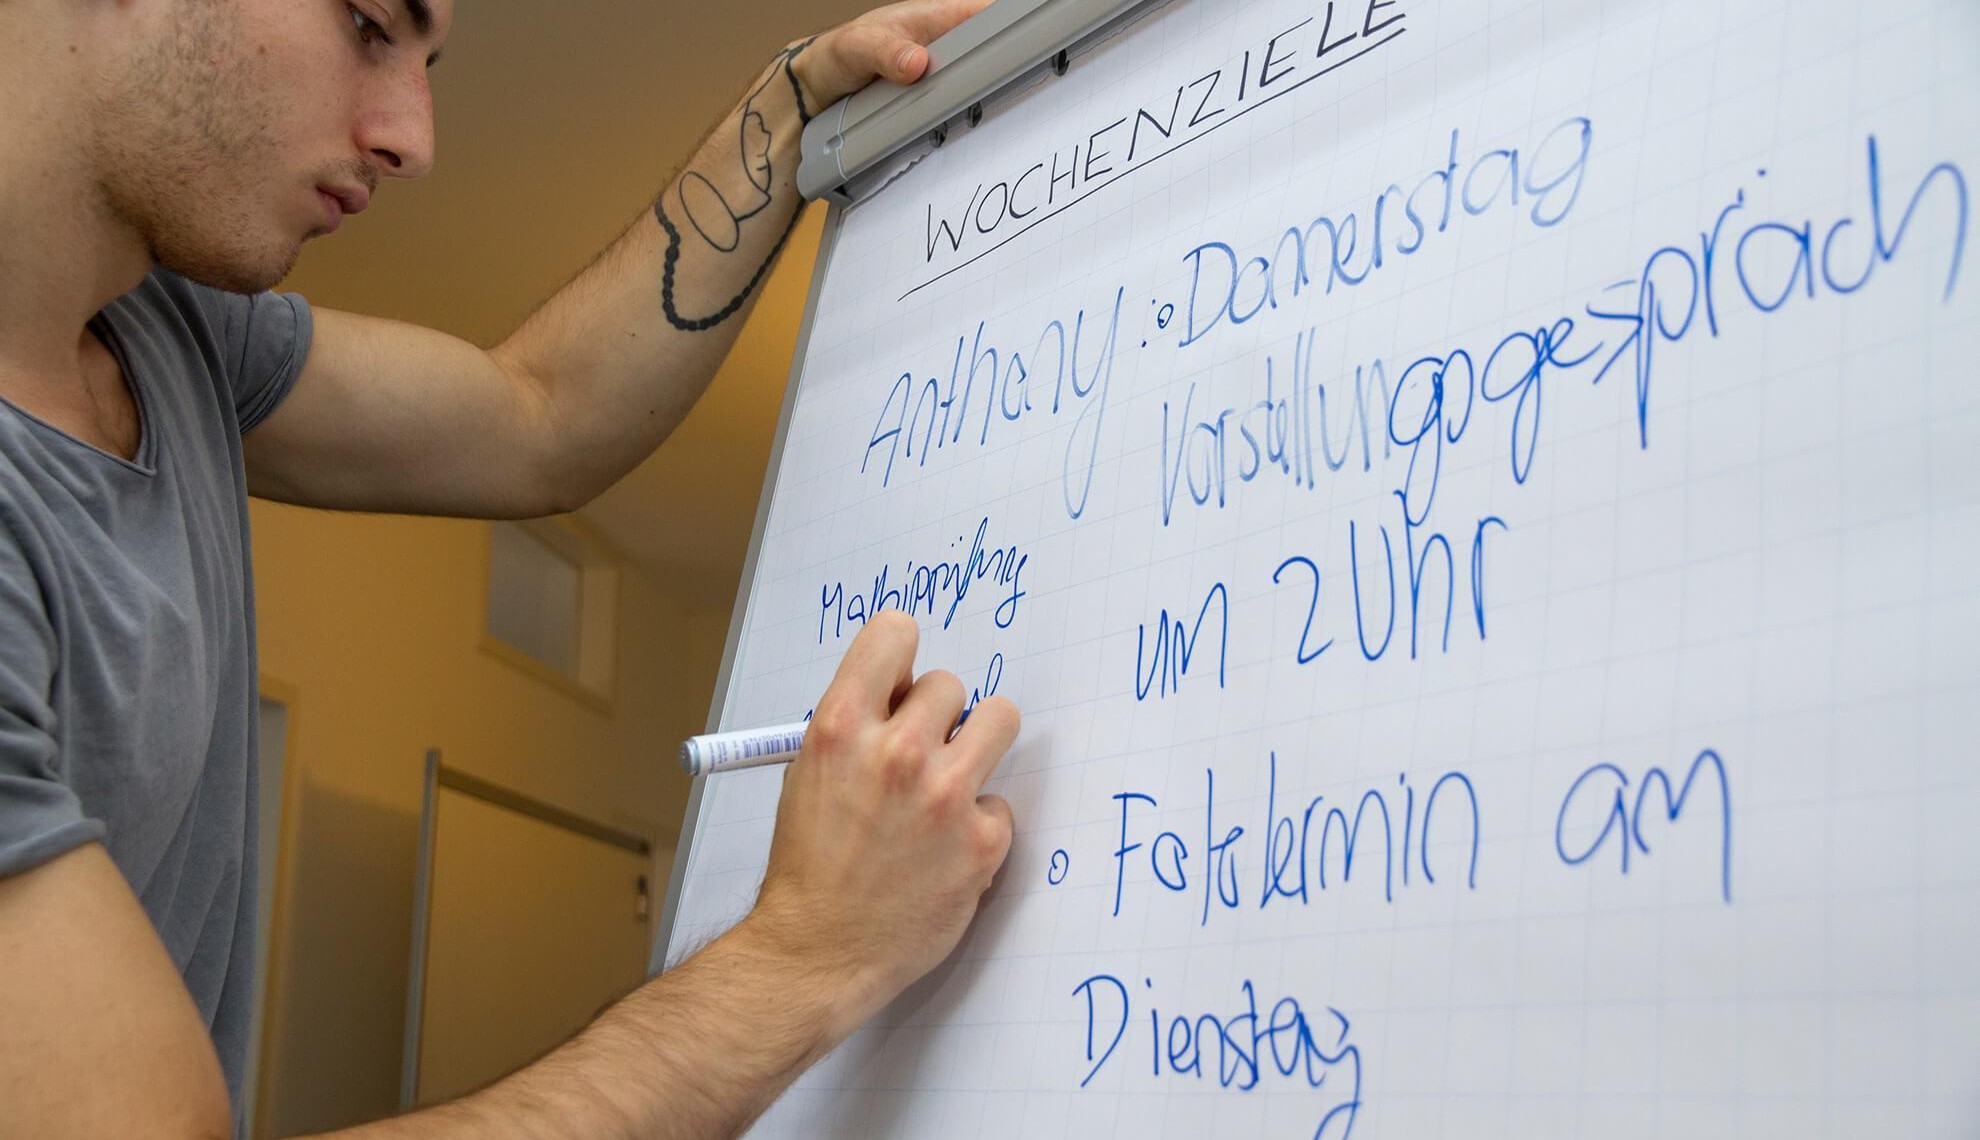 WOCHENZIELE
Anthony : ° Donnerstag
Vorstellungsgespräch
um 2 Uhr
° Fototermin am
Dienstag